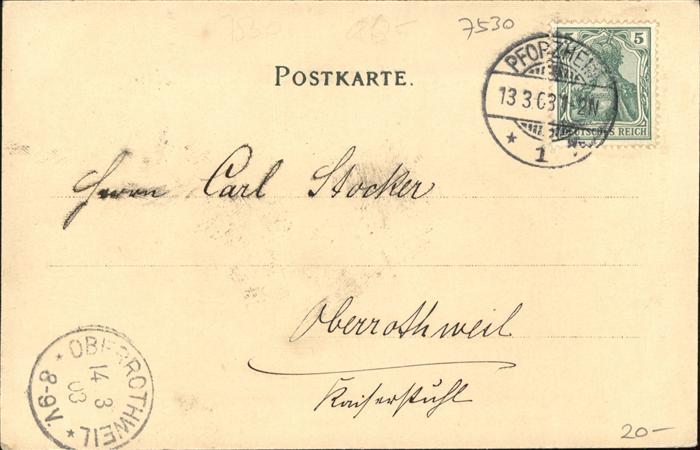 7530
5 5
DEUTSCHES REICH
PFORZHEIM
13 3 03 1-2N
* 1 *
POSTKARTE.
Herrn Carl Stocker
Oberrothweil
Kaiserstuhl
* OBERROTHWEIL *
14 3
03
8-9V.
20-